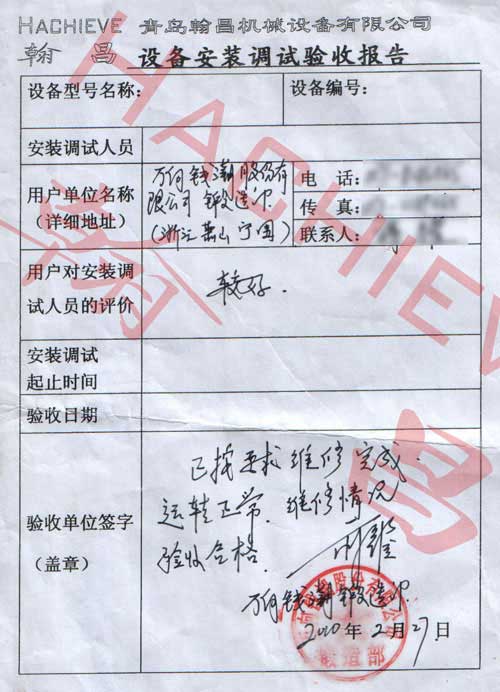 HACHIEVE 青岛翰昌机械设备有限公司
翰昌 设备安装调试验收报告
设备型号名称： 设备编号：
安装调试人员
用户单位名称
（详细地址）
万向钱潮股份有
限公司 锻造厂
（浙江萧山宁围）
电 话：
传 真：
联系人：
用户对安装调
试人员的评价
较好.
安装调试
起止时间
验收日期
验收单位签字
（盖章）
已按要求维修完成.
运转正常. 维修情况
验收合格.
万向钱潮锻造厂
2010年2月27日
HACHIEVE
翰昌